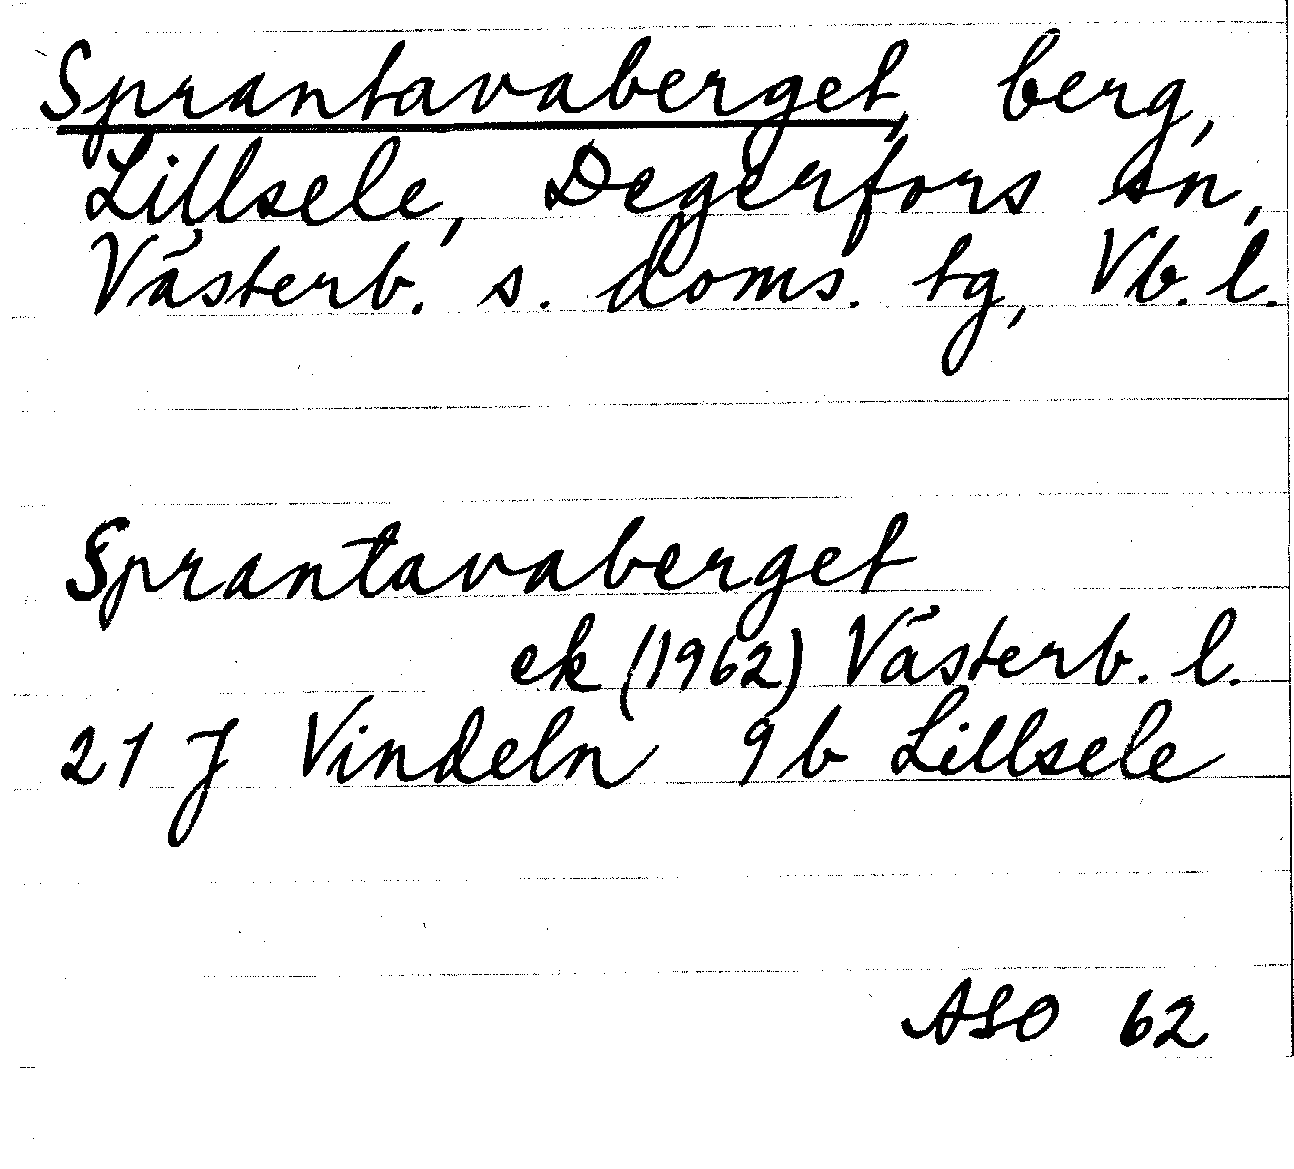 Sprantavaberget, berg,
Lillsele, Degerfors sn,
Västerb. s. doms. tg, Vb. l.
Sprantavaberget
ek (1962) Västerb. l.
21 J Vindeln 9b Lillsele
ASO 62